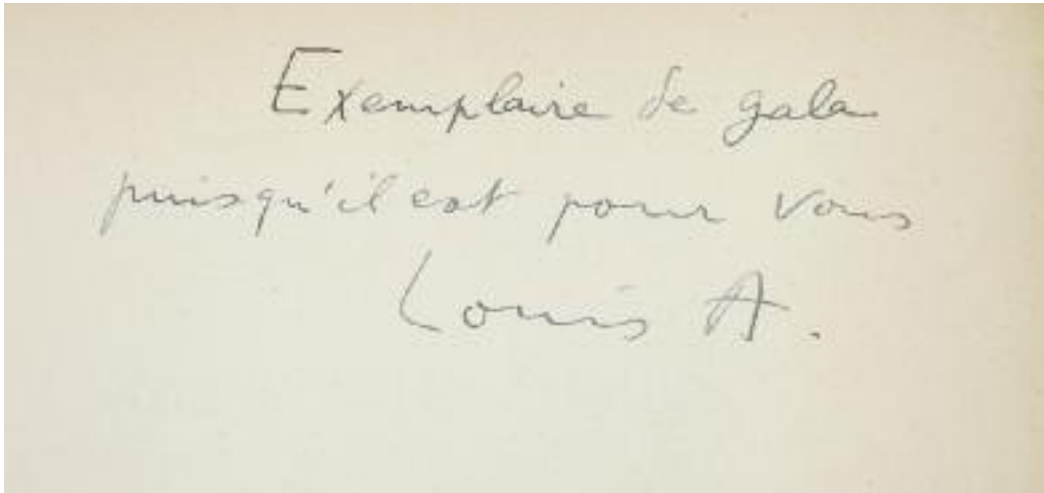 Exemplaire de gala
puisqu'il est pour vous
Louis A.